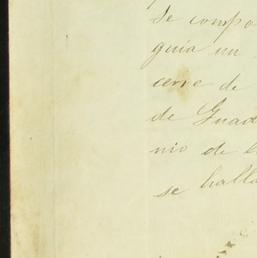 se compo
guia un
cerre de
de Guad
nio de
se halla